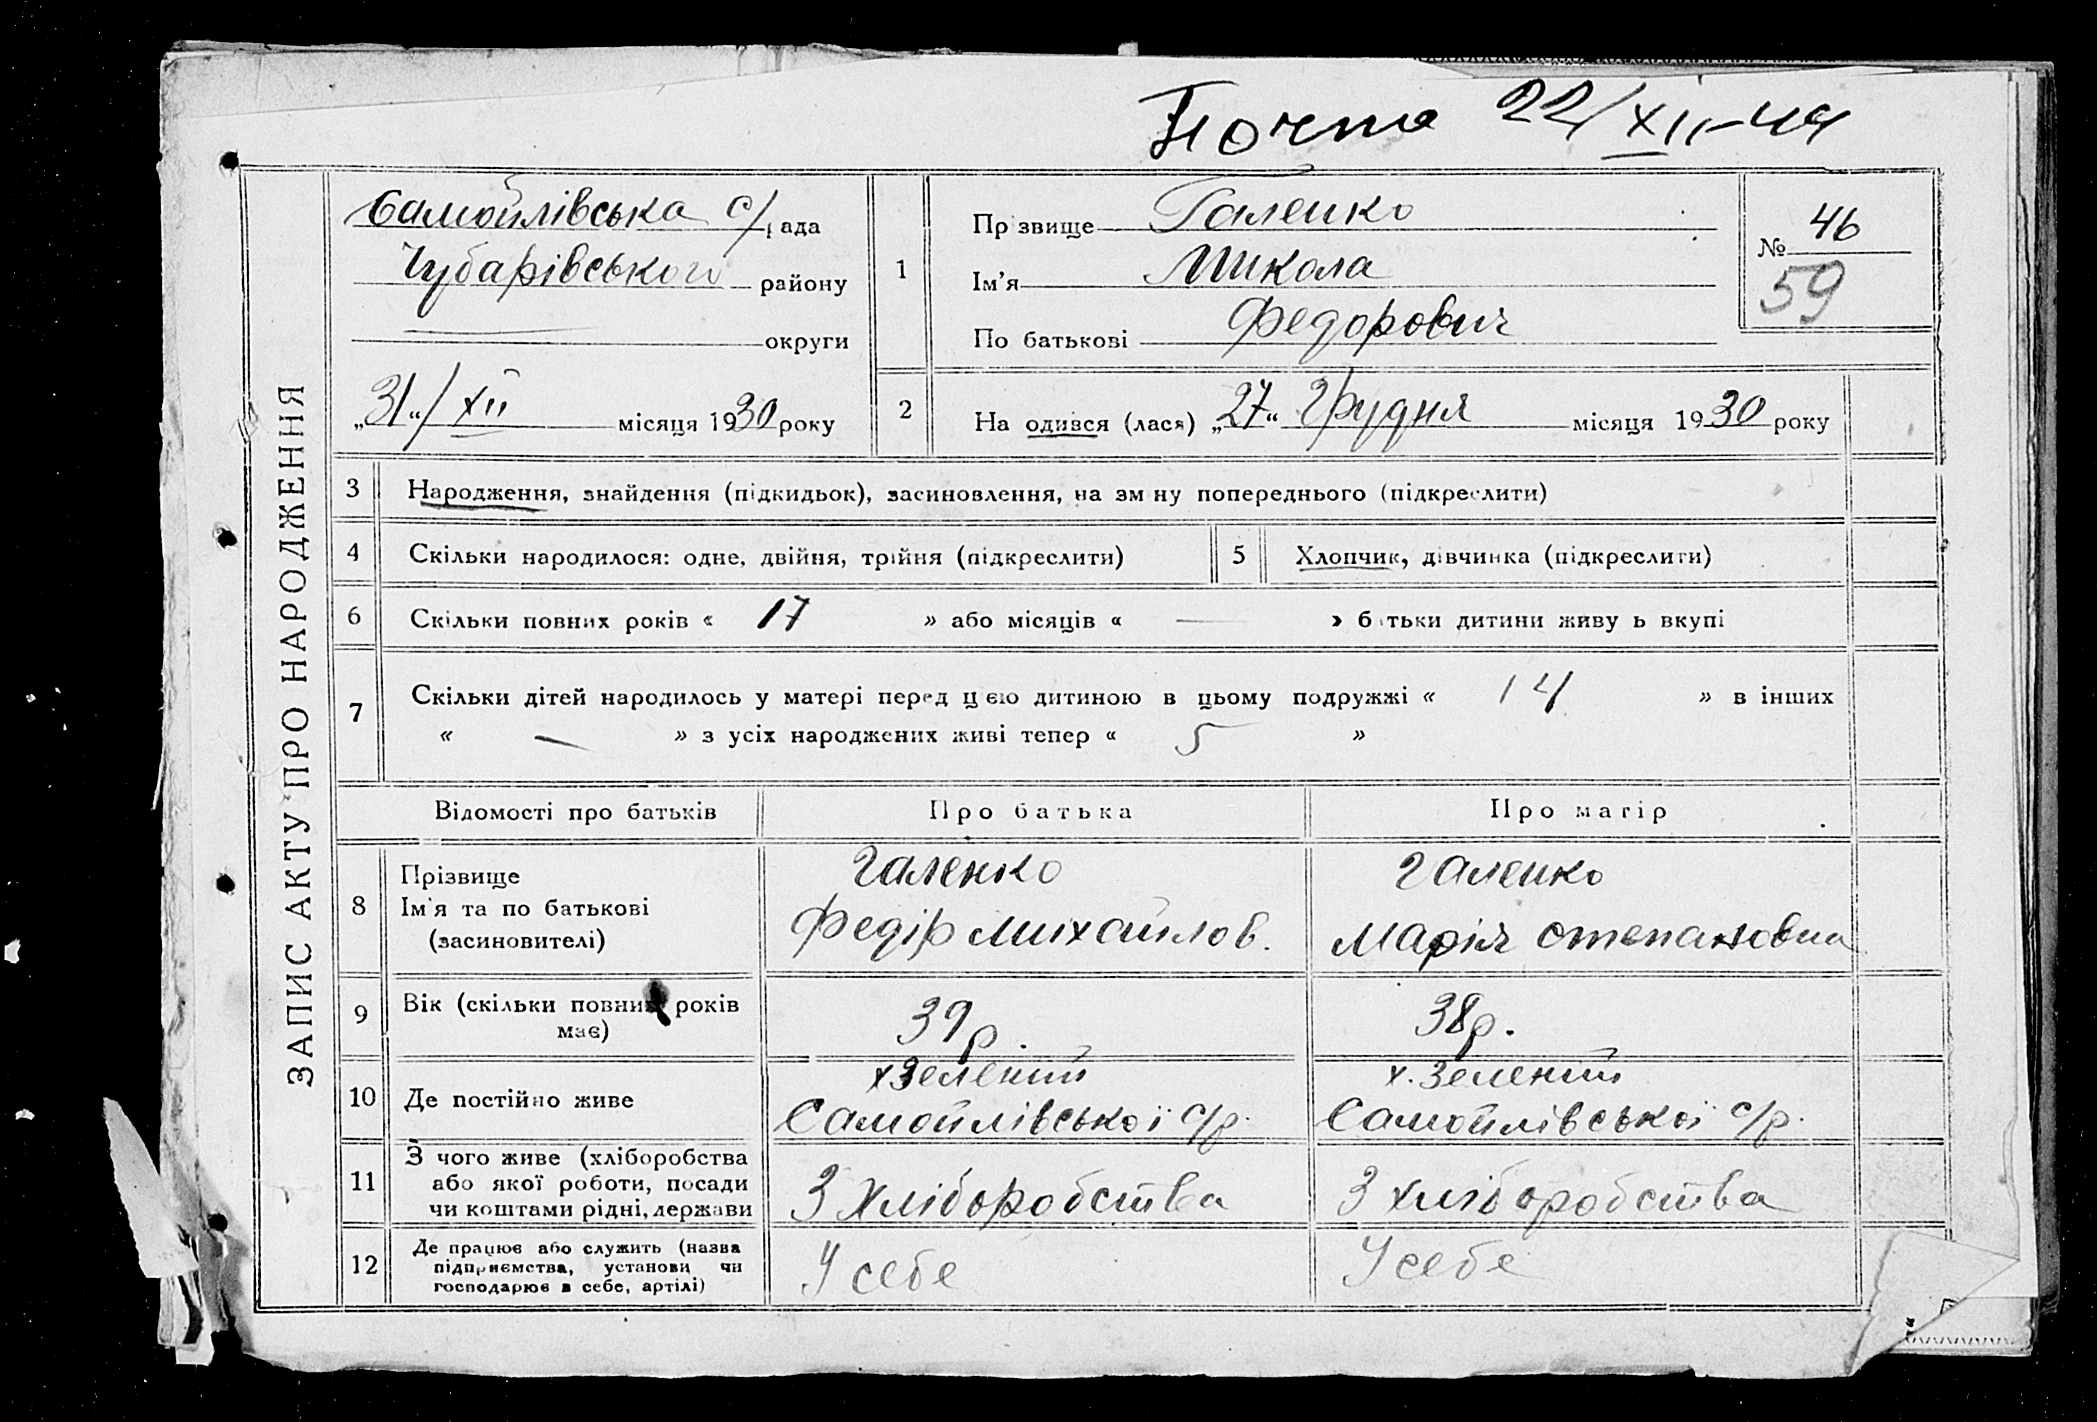 Почта 22/XII-49
ЗАПИС АКТУ ПРО НАРОДЖЕННЯ
Самойлівська с/рада
Чубарівського району
округи
„31“/XII місяця 1930 року
1
Прізвище Галенко
Ім'я Микола
По батькові Федорович
№ 46
59
2
На одився (лася) „27“ Грудня місяця 1930 року
3 Народження, знайдення (підкидьок), засиновлення, на зміну попереднього (підкреслити)
4 Скільки народилося: одне, двійня, трійня (підкреслити)
5 Хлопчик, дівчинка (підкреслити)
6 Скільки повних років « 17 » або місяців « — » батьки дитини живуть вкупі
7 Скільки дітей народилось у матері перед цією дитиною в цьому подружжі « 14 » в інших
« — » з усіх народжених живі тепер « 5 »
Відомості про батьків Про батька Про матір
8 Прізвище
Ім'я та по батькові
(засиновителі)
Галенко
Федір Михайлов.
Галенко
Марія Степановна
9 Вік (скільки повних років
має)
39 р.
38 р.
10 Де постійно живе
х Зелений
Самойлівської с/р.
х. Зелений
Самойлівської с/р.
11 З чого живе (хліборобства
або якої роботи, посади
чи коштами рідні, держави
З хліборобства
З хліборобства
12 Де працює або служить (назва
підприємства, установи чи
господарює в себе, артілі)
У себе
У себе